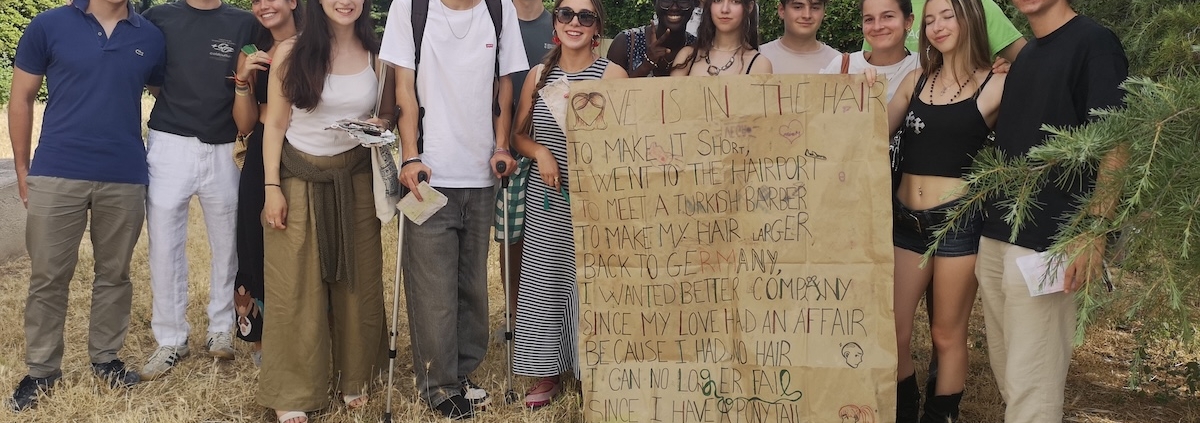 OVE IS IN THE HAIR
TO MAKE IT SHORT,
I WENT TO THE HAIRPORT
TO MEET A TURKISH BARBER
TO MAKE MY HAIR LARGER,
BACK TO GERMANY,
I WANTED BETTER COMPANY
SINCE MY LOVE HAD AN AFFAIR
BECAUSE I HAD NO HAIR
I CAN NO LONGER FAIL
SINCE I HAVE A PONYTAIL